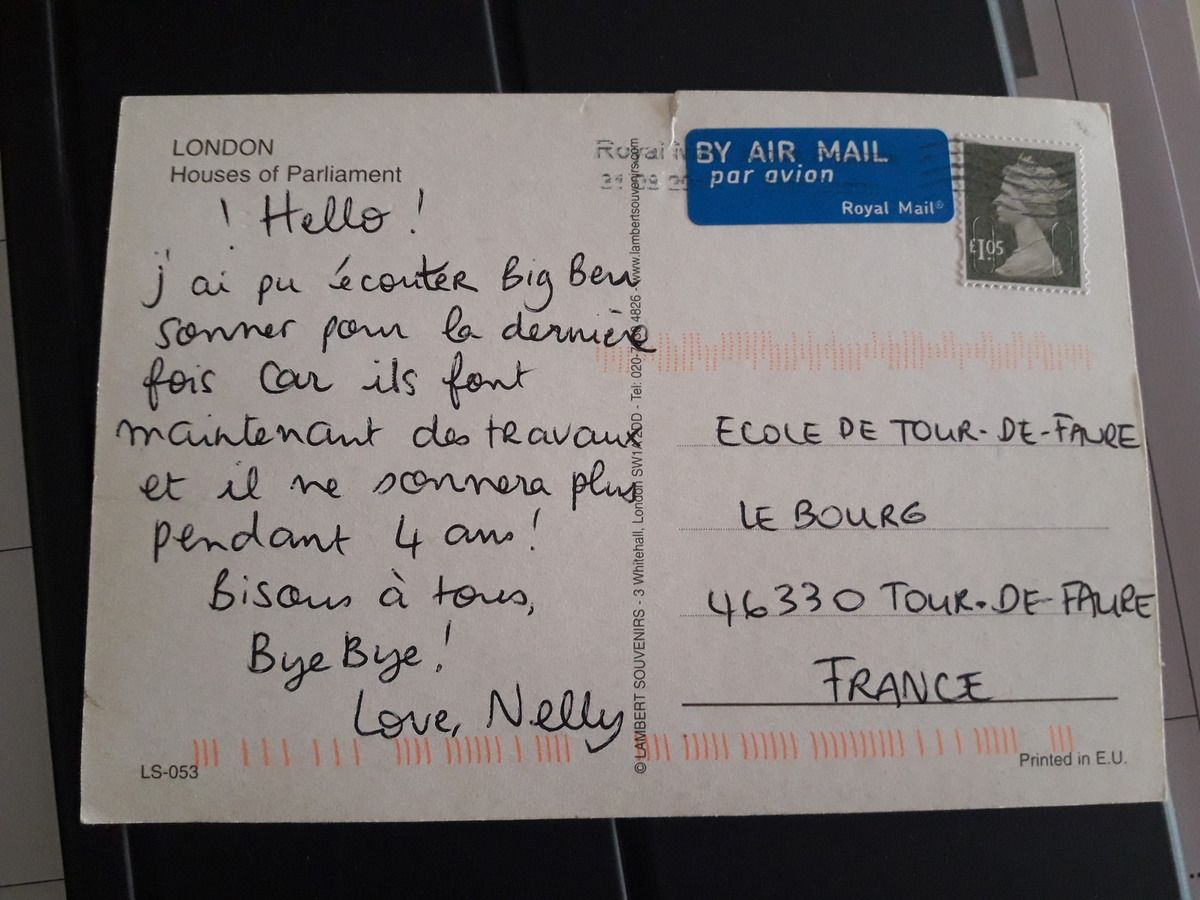 LONDON
Houses of Parliament
! Hello !
j'ai pu écouter Big Ben
sonner pour la dernière
fois car ils font
maintenant des travaux
et il ne sonnera plus
pendant 4 ans !
Bisous à tous,
Bye Bye !
Love, Nelly
LS-053
© LAMBERT SOUVENIRS - 3 Whitehall, London SW1A 2DD - Tel: 020-7 4826 - www.lambertsouvenirs.com
Royal
BY AIR MAIL
par avion
Royal Mail©
£1.05
ECOLE DE TOUR-DE-FAURE
LE BOURG
46330 TOUR-DE-FAURE
FRANCE
Printed in E.U.